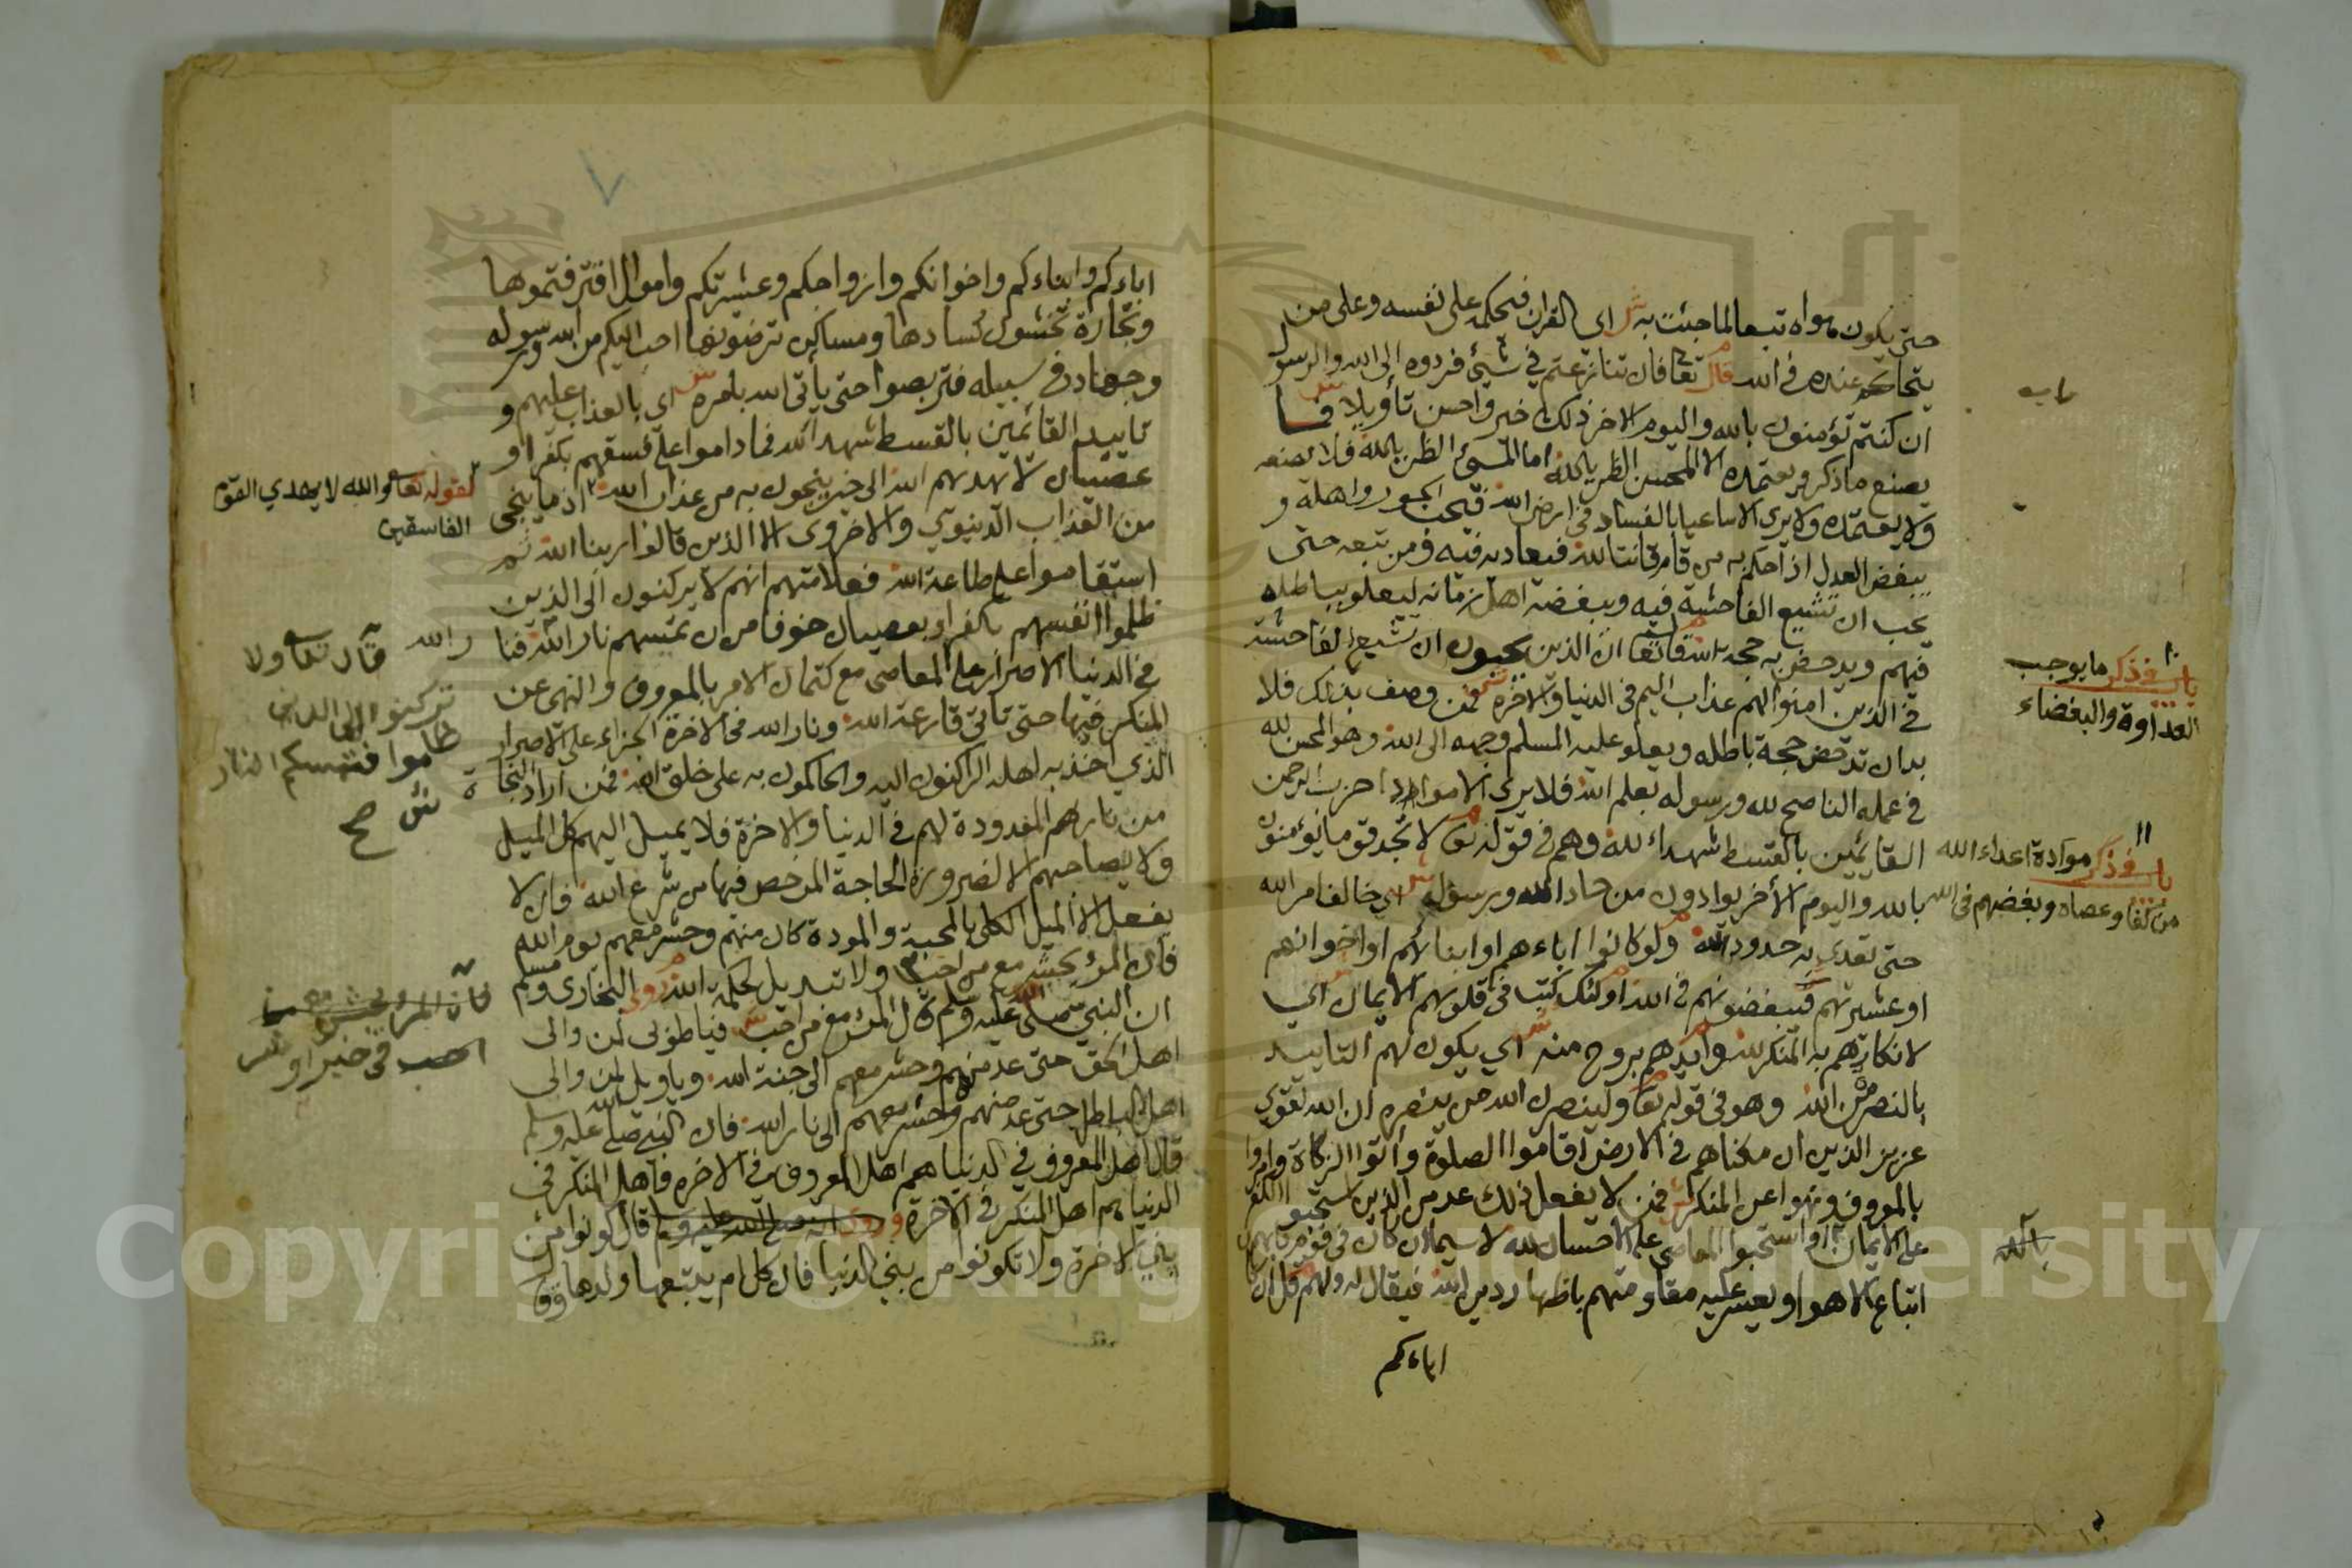 حتى يكون هواه تبعا لما جئت به ش اى القران فيحكمه على نفسه وعلى من
يتحاكم عنده في الله قال تعا فان تنازعتم في شيئ فردوه الى الله والرسول
ان كنتم تؤمنون بالله واليوم الاخر ذلك خير واحسن تأويلا ش فلا
يصنع ما ذكر ويعتمده الا المحسن الظن بالله اما المسئ الظن بالله فلا يصنعه
ولا يعتمده ولا يرى الا ساعيا بالفساد في ارض الله فيحب الجور واهله و
يبغض العدل اذا حكم به من قام قانتا لله فيعاديه فيه ومن تبعه حتى
يحب ان تشيع الفاحشة فيه ويبغضه اهل زمانه ليعلو بباطله
فيهم ويدحض به حجة الله قال تعا ان الذين يحبون ان تشيع الفاحشة
في الذين امنوا لهم عذاب اليم في الدنيا والاخرة ش فمن وصف بذلك فلا
بد ان تدحض حجة باطله ويعلو عليه المسلم وجهه الى الله وهو المحسن لله
في عمله الناصح لله ورسوله بعلم الله فلا يرى الا موادا حزب الرحمن
القايمين بالقسط شهداء لله وهم في قوله تعا لا تجد قوما يؤمنون
بالله واليوم الأخر يوادون من حاد الله ورسوله ش اي خالف امر الله
حتى تعدى به حدود الله ولو كانوا اباءهم او ابنائهم او اخوانهم
او عشيرتهم فيبغضونهم في الله اولئك كتب في قلوبهم الايمان اي
لانكارهم به المنكر لله وايدهم بروح منه ش اي يكون لهم التاييد
بالنصر من الله وهو في قوله تعا ولينصرن الله من ينصره ان الله لقوي
عزيز الذين ان مكناهم في الارض اقاموا الصلوة وأتوا الزكاة وامروا
بالمعروف ونهوا عن المنكر ش فمن لا يفعل ذلك عد من الذين استحبوا الكفر
على الايمان او استحبوا المعاصي على الاحسان لله لا سيما ان كان في قوم
اتباع الاهوا ويعسر عليه مقاومتهم باظهار دين الله فيقال له ولهم قل ان
اباءكم
باب فذكر ما يوجب
العداوة والبغضاء
١١
باب فذكر موادة اعداء الله
من كفار وعصاه وبغضهم في الله
بالله
اباءكم وابناءكم واخوانكم وازواجكم وعشيرتكم واموال اقترفتموها
وتجارة تخشون كسادها ومساكن ترضونها احب اليكم من الله ورسوله
وجهاد في سبيله فتربصوا حتى يأتى الله بامره ش اي بالعذاب عليهم و
تاييد القائمين بالقسط شهداء لله فما داموا على فسقهم بكفر او
عصيان لا يهديهم الله الى خير ينجون به من عذاب الله اذ ما ينجى
من العذاب الدنيوي والاخروى الا الذين قالوا ربنا الله ثم
استقاموا على طاعة الله فعلامتهم انهم لا يركنون الى الذين
ظلموا انفسهم بالكفر او بعصيان خوفا من ان تمسهم نار الله فنا
في الدنيا الاصرار على المعاصى مع كتمان الامر بالمعروف والنهى عن
المنكر فيها حتى تاتى قارعة الله ونار الله في الاخرة الجزاء على الاصرار
الذي اخذ به اهله الراكنون اليه والحاكمون به على خلق الله فمن اراد النجاة
من نارهم المعدودة لهم في الدنيا والاخرة فلا يميل اليهم كل الميل
ولا يصاحبهم الا لضرورة الحاجة المرخص فيها من شرع الله فان لا
يفعل الا الميل الكلى بالمحبة والمودة كان منهم وحشر معهم يوم الله
فان المرؤ يحشر مع من احب ولا تبديل لحكمة الله روى البخارى ومسلم
ان النبي صلى الله عليه وسلم قال المرؤ مع من احب ش فيا طوبى لمن والى
اهل الحق حتى عد منهم وحشر معهم الى جنة الله ويا ويل لمن والى
اهل الباطل حتى عد منهم وحشر معهم الى نار الله فان النبي صلى الله عليه وسلم
قال اهل المعروف في الدنيا هم اهل المعروف في الاخره واهل المنكر في
الدنيا هم اهل المنكر في الاخرة قال كونوا من
بني الاخرة ولا تكونوا من بنى الدنيا فان كل ام يتبعها ولدها
لقوله تعا والله لا يهدي القوم
الفاسقين
قال تعا ولا
تركنوا الى الذين
ظلموا فتمسكم النار
ش صح
فان المرؤ يحشر مع من
احب في خير او شر